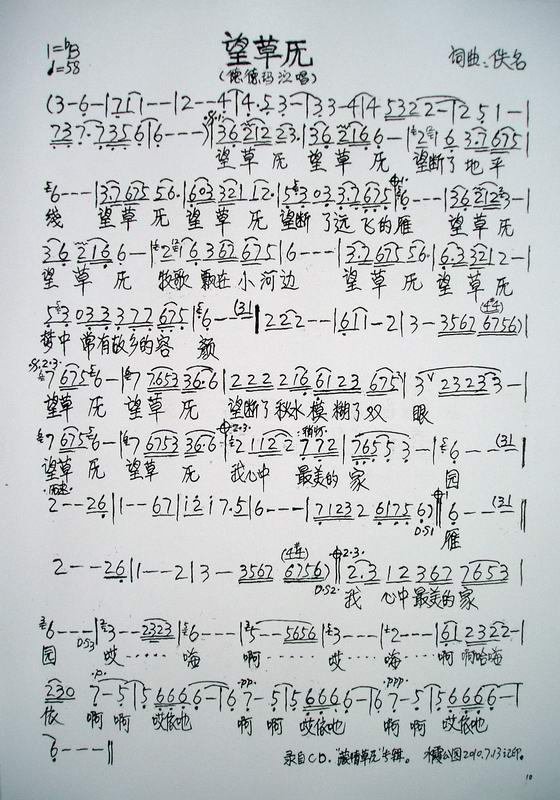 1=♭B
♩=58
望草原
(德德玛演唱)
词曲：佚名
(3-6-|7 1 1--|2--4|4·5 3-|3 3-4|4 5322-|2 5 1-|
737·735 6|6---)|36 212 23·|36 216 6-|2 1 6 3·7675|
望草原 望草原 望断了地平
6---|3·7675 56·|603 321 12·|53 03 3·7675|6--|36 2123-|
线 望草原 望草原 望断了远飞的雁 望草原
36 216 6-|2 1 6 362 675|6---|3·7675 56·|6·3 321 2-|
望草原 牧歌飘在小河边 望草原 望草原
53 033 377 675|6--(31|222--|611-2|3-3567 6756)|
梦中常有故乡的容颜
7 6756-|7 7653 36·6|2222 216 6123 675|3 23233-|
望草原 望草原 望断了秋水模糊了双眼
7 6756-|7 6753 36·6|2 1122 772|76553-|6--(31|
望草原 望草原 我心中最美的家园
2--26|1--67|1217·5|6---|71232 6175 6)|6--(31|
D.S1 雁
2--26|1--2|3-3567 6756)|2·3 12 3627 7653|
D.S2. 我心中最美的家
6---|3--2323|6---|5--5656|3---|2---|61 2322-|
园 D.S3 哎…… 嗨 啊 哎 嗨 啊 啊哈嗨
230 7-5|5 6666-|6 7-5|5 6666-|6 7-5|5 6666-|
依 啊啊 哎依吔 啊啊 哎依吔 啊啊 哎依吔
6---‖
录自CD.
2010.7.13
10